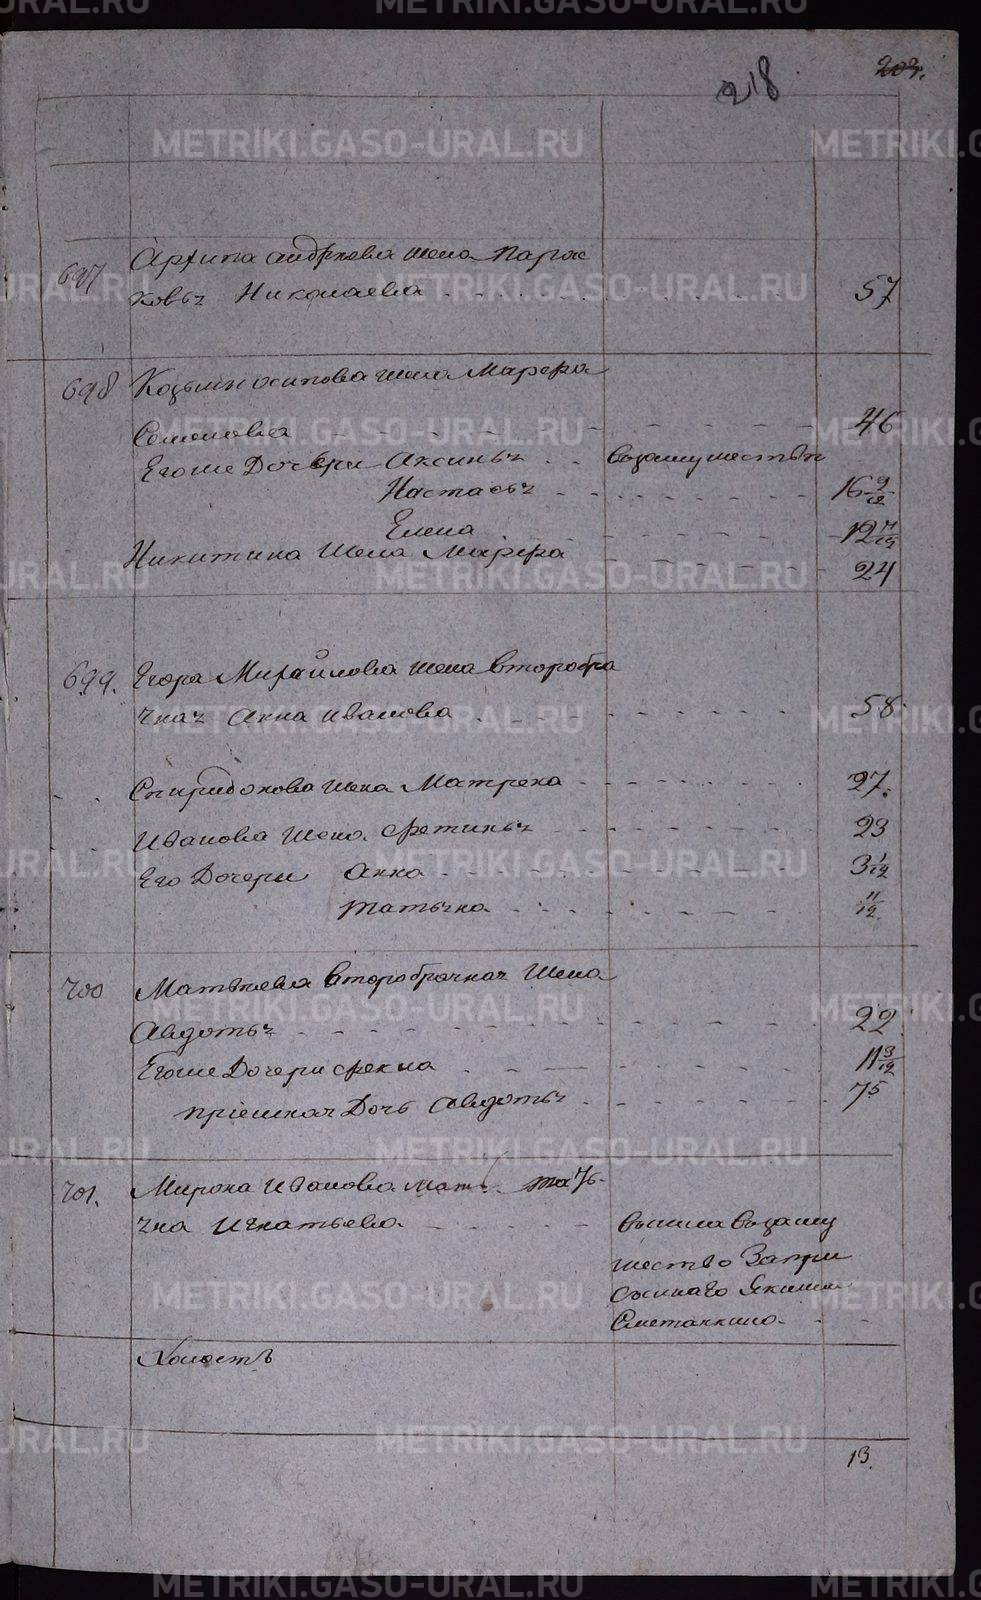 203.
218
697 Архипа андреева жена парас
ковья Николаева 57
698 Козьмы осипова жена Марфа
Семенова 46
Егоже Дочери Аксинья взамужествѣ
Настасья 16 9/12
Елена 12 4/12
Никитина жена Марфа 24
699. Егора Михайлова жена второбра
чная Анна иванова 58
Спиридонова жена Матрена 27.
Иванова жена Фетинья 23
Его Дочери Анна 3 1/12
татьяна 11/12
700 Матвѣева второбрачная жена
Авдотья 22
Егоже Дочери Фекла 11 3/12
Пріемная Дочь Авдотья 75
701. Мирона Иванова мать тать-
яна Игнатьева вышла взаму
жество За
Якима
Сметанкина
Холостъ
13.
METRIKI.GASO-URAL.RU